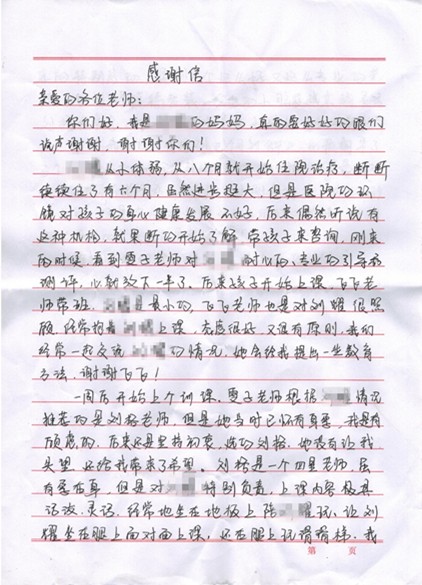 感谢信
亲爱的各位老师：
你们好，我是 的妈妈，真的要好好的跟你们
说声谢谢，谢谢你们！
从小体弱，从八个月就开始住院治疗，断断
续续住了有六个月，虽然进步挺大，但是医院的环
境对孩子的身心健康发展不好，后来偶然听说有
这种机构，就果断的开始了解，带孩子来咨询，刚来
的时候，看到夏子老师对 耐心的、专业的引导和
测评，心就放下一半了，后来孩子开始上课，飞飞老
师带班， 是小的，飞飞老师也是对刘耀很照
顾，经常抱着 上课，态度很好，又很有原则，我们
经常一起交流 的情况，她会给我提出一些教育
方法，谢谢飞飞！
一周后开始上个训课，夏子老师根据 情况
推荐的是刘格老师，但是她当时已怀有身孕，我是有
顾虑的，后来还是坚持初衷，选的刘格，她没有让我
失望，还给我带来了希望。刘格是一个四星老师，虽
有孕在身，但是对 特别负责，上课内容极具
活泼、灵活，经常地坐在地板上陪 玩，让刘
耀坐在腿上面对面上课，还在腿上玩滑滑梯，我
第 页